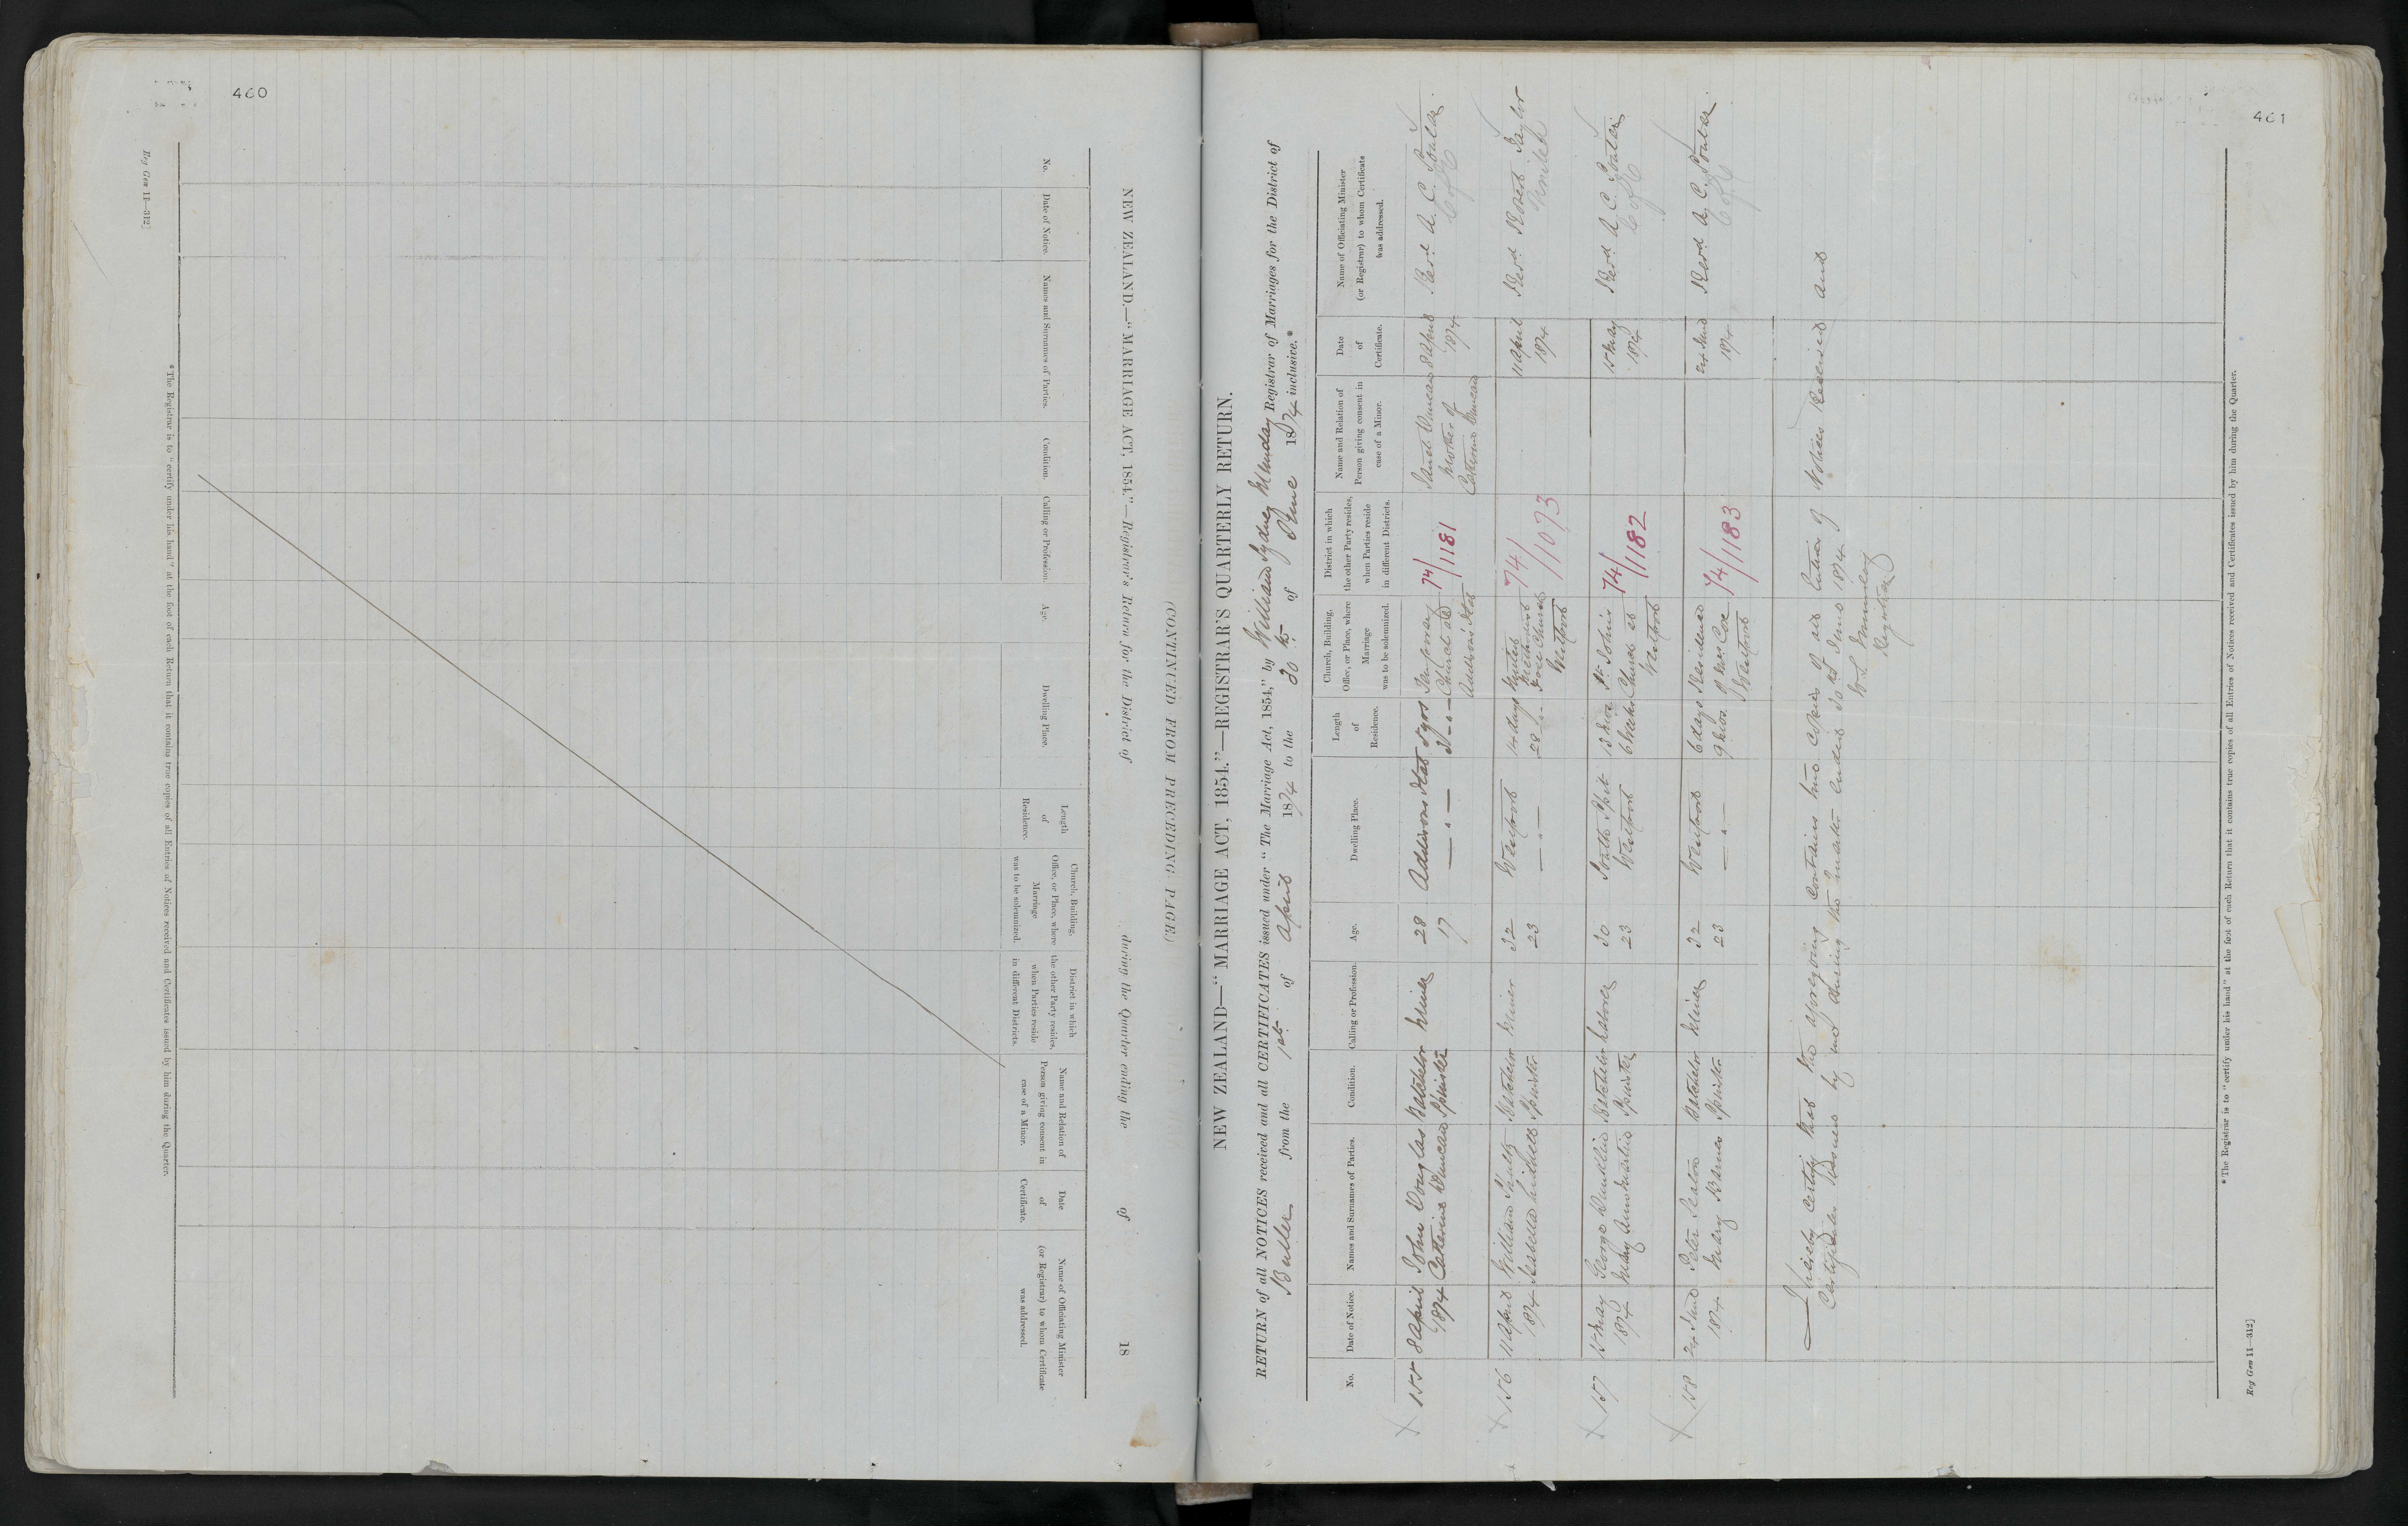 460
Reg Gen 11—312]
NEW ZEALAND.—"MARRIAGE ACT, 1854."—Registrar's Return for the District of during the Quarter ending the of 18
(CONTINUED FROM PRECEDING PAGE)
No.
Date of Notice.
Names and Surnames of Parties.
Condition.
Calling or Profession.
Age.
Dwelling Place.
Length
of
Residence.
Church, Building,
Office, or Place, where
Marriage
was to be solemnized.
District in which
the other Party resides,
when Parties reside
in different Districts.
Name and Relation of
Person giving consent in
case of a Minor.
Date
of
Certificate.
Name of Officiating Minister
(or Registrar) to whom Certificate
was addressed.
*The Registrar is to "certify under his hand" at the foot of each Return that it contains true copies of all Entries of Notices received and Certificates issued by him during the Quarter.
461
NEW ZEALAND—"MARRIAGE ACT, 1854."—REGISTRAR'S QUARTERLY RETURN.
RETURN of all NOTICES received and all CERTIFICATES issued under "The Marriage Act, 1854," by William Sydney Munday Registrar of Marriages for the District of
Buller from the 1st of April 1874 to the 30th of June 1874 inclusive.*
No.
Date of Notice.
Names and Surnames of Parties.
Condition.
Calling or Profession.
Age.
Dwelling Place.
Length
of
Residence.
Church, Building,
Office, or Place, where
Marriage
was to be solemnized.
District in which
the other Party resides,
when Parties reside
in different Districts.
Name and Relation of
Person giving consent in
case of a Minor.
Date
of
Certificate.
Name of Officiating Minister
(or Registrar) to whom Certificate
was addressed.
155 8 April John Douglas Batchelor Miner 28 Addisons Flat 5 yrs Temporary 74/ Duncan 8 April Revd A. C. Soutar
1874 Catherine Duncan Spinster 17 —"— 3 —"— Church at 1181 Mother of 1874 C of E
Addisons Flat Catherine Duncan
156 11 April William Batchelor Miner 32 Westport 14 days United 74/ 11 April Revd Robert Taylor
1874 Isabella Spinster 23 —"— 28 —"— Methodist 1093 1874
Free Church
Westport
157 15 May George Batchelor Laborer 30 South Spit St. Johns 74/ 15 May Revd A. C. Soutar
1874 Mary Ann Martin Spinster 23 Westport 6 weeks Church at 1182 1874 C of E
Westport
158 24 June Peter Batchelor Miner 32 Westport 6 days Residence 74/ 24 June Revd A. C. Soutar
1874 Mary Spinster 23 —"— of Mrs. Coe 1183 1874 C of E
Westport
I hereby certify that the aforegoing contains true Copies of all Entries of Notices Received and
Certificates Issued by me during the Quarter ended 30th June 1874
W. S. Munday
Registrar
*The Registrar is to "certify under his hand" at the foot of each Return that it contains true copies of all Entries of Notices received and Certificates issued by him during the Quarter.
Reg Gen 11—312]